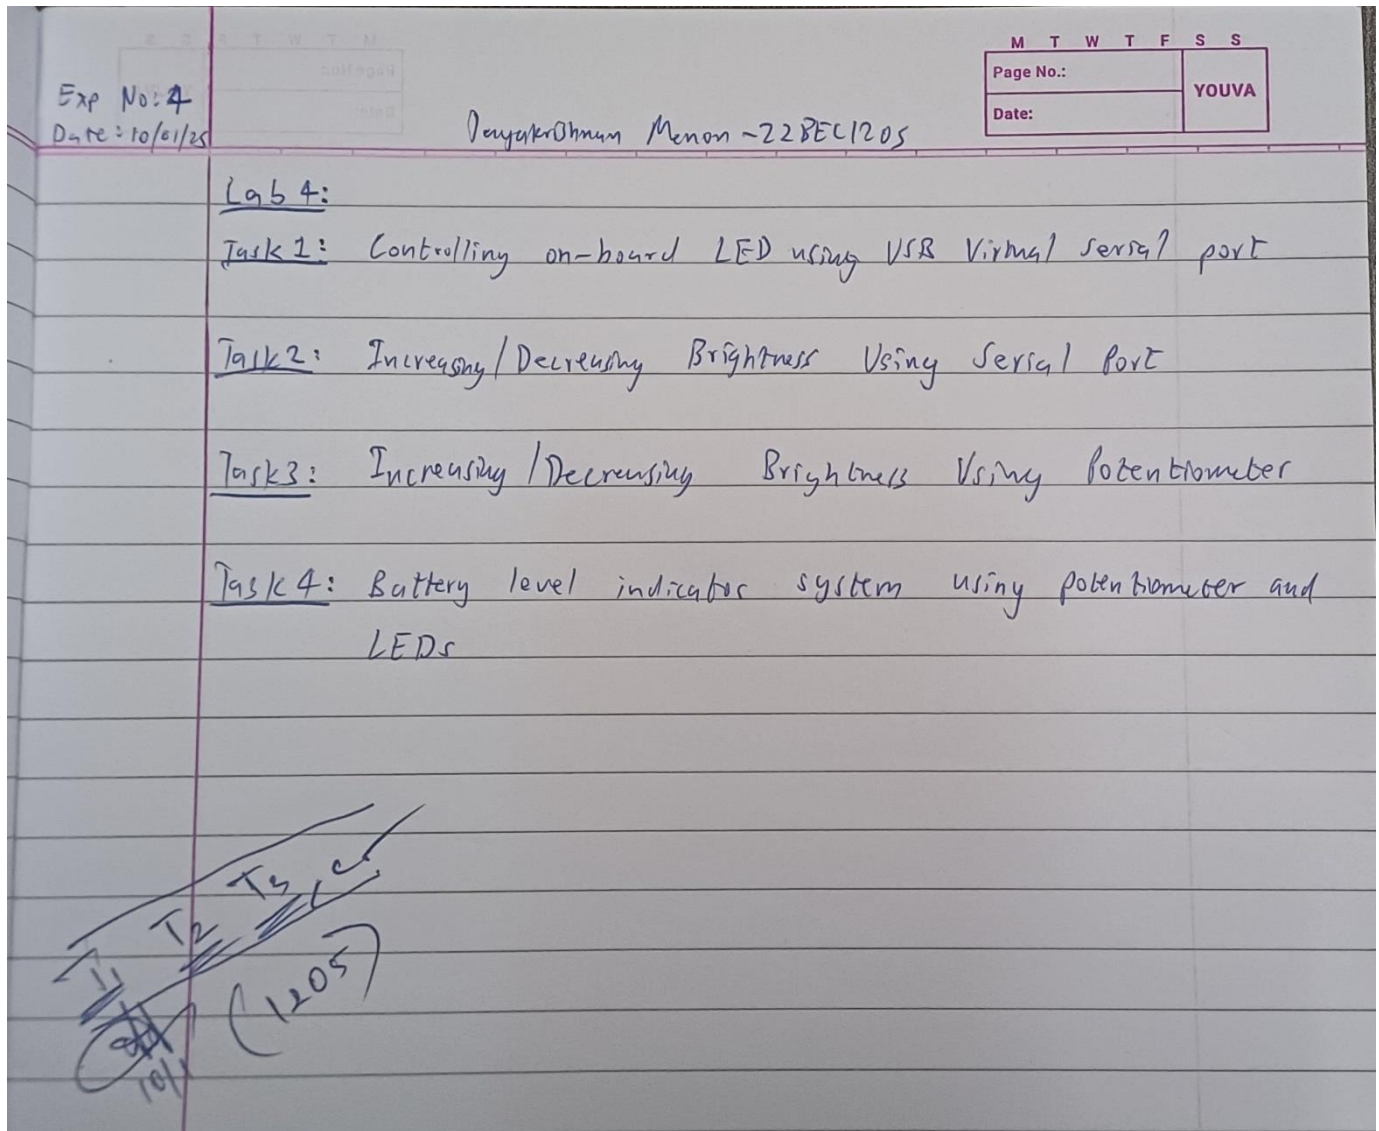 M T W T F S S
Page No.:
YOUVA
Date:
Exp No: 4
Date: 10/01/25
Menon - 22BEC1205
Lab 4:
Task 1: Controlling on-board LED using USB Virtual serial port
Task 2: Increasing/Decreasing Brightness Using Serial Port
Task 3: Increasing/Decreasing Brightness Using Potentiometer
Task 4: Battery level indicator system using potentiometer and
LEDs
T1 T2 T3
(1205)
10/1